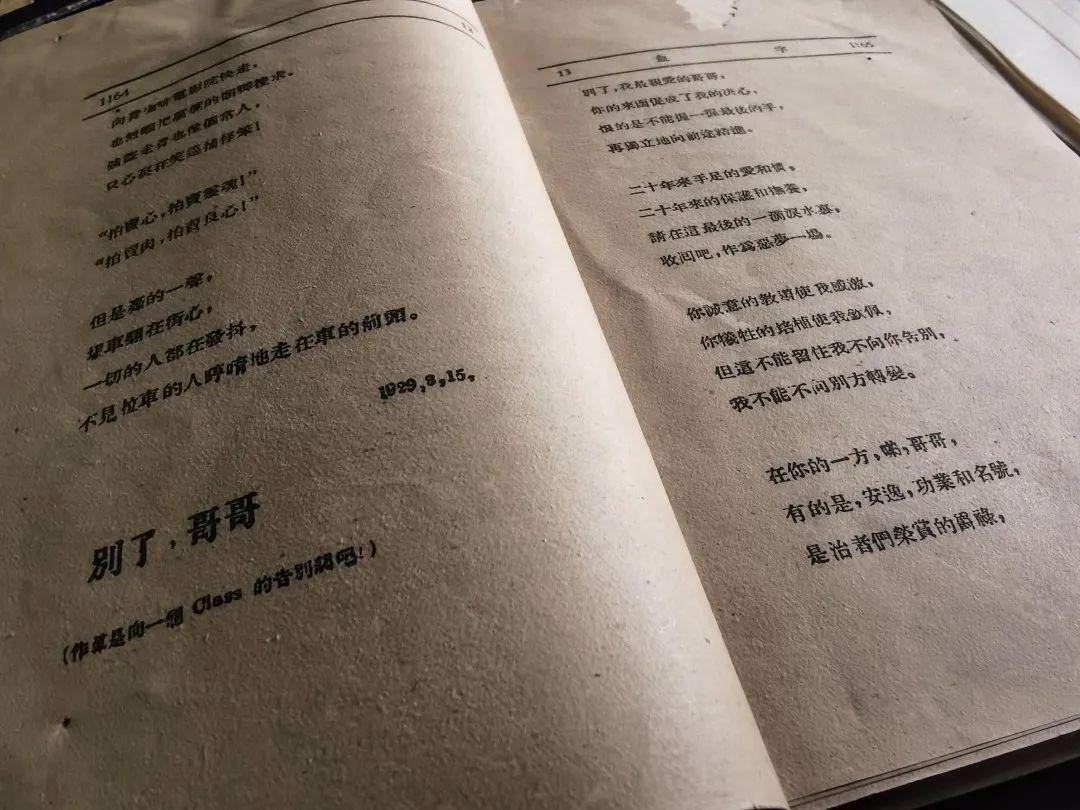 1164
向青咖啡電影院快走,
良心
“拍賣心,拍賣靈魂!”
“拍賣肉,拍賣良心!”
但是轟的一聲,
車翻在街心,
一切的人都在發抖,
不見拉車的人哼唷地走在車的前頭。
1929,3,15,
別了,哥哥
(作算是向一個 Class 的告別詞吧!)
13 血 字 1165
別了,我最親愛的哥哥,
你的來函促成了我的決心,
恨的是不能握一握最後的手,
再獨立地向前途踏進。
二十年來手足的愛和憐,
二十年來的保護和撫養,
請在這最後的一滴淚水裏,
收回吧,作爲惡夢一場。
你誠意的教導使我感激,
你犧牲的培植使我欽佩,
但這不能留住我不向你告別,
我不能不向別方轉變。
在你的一方,喲,哥哥,
有的是,安逸,功業和名號,
是治者們榮賞的爵祿,